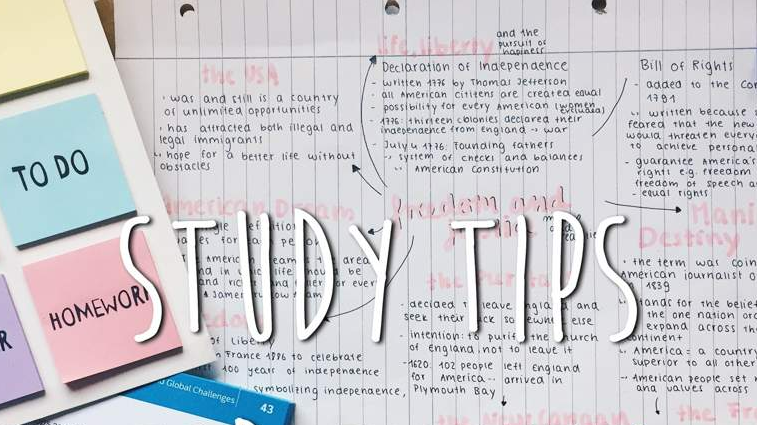 TO DO
HOMEWORK
R
STUDY TIPS
life, liberty
and the
pursuit of
happiness
the USA
· was and still is a country
of unlimited opportunities
· has attracted both illegal and
legal immigrants
hope for a better life without
obstacles
Declaration of Independence
- written 1776 by Thomas Jefferson
- all American citizens are created equal
- possibility for every American (women
excluded)
- 1776: thirteen colonies declared their
independence from england → war
- July 4 1776: Founding fathers
system of checks and balances
American constitution
Bill of Rights
- added to the Con
1791
written because s
feared that the new
would threaten every
to achieve persona
- guarantee America's
rights e.g. freedom
freedom of speech a
- equal rights
American Dream
freedom and
Mani
Destiny
· the term was coin
American journalist o
1839
stands for the belief
the one nation or
expand across th
continent
America = a country
superior to all other
American people set
and values across
the Pur
decided to leave England and
seek their luck somewhere else
· intention: to purify the church
of england, not to leave it
- 1620: 102 people left England
for America → arrived in
Plymouth Bay
of Liberty
France 1886 to celebrate
100 years of independence
symbolizing independence,
d Global Challenges
43
the Fr